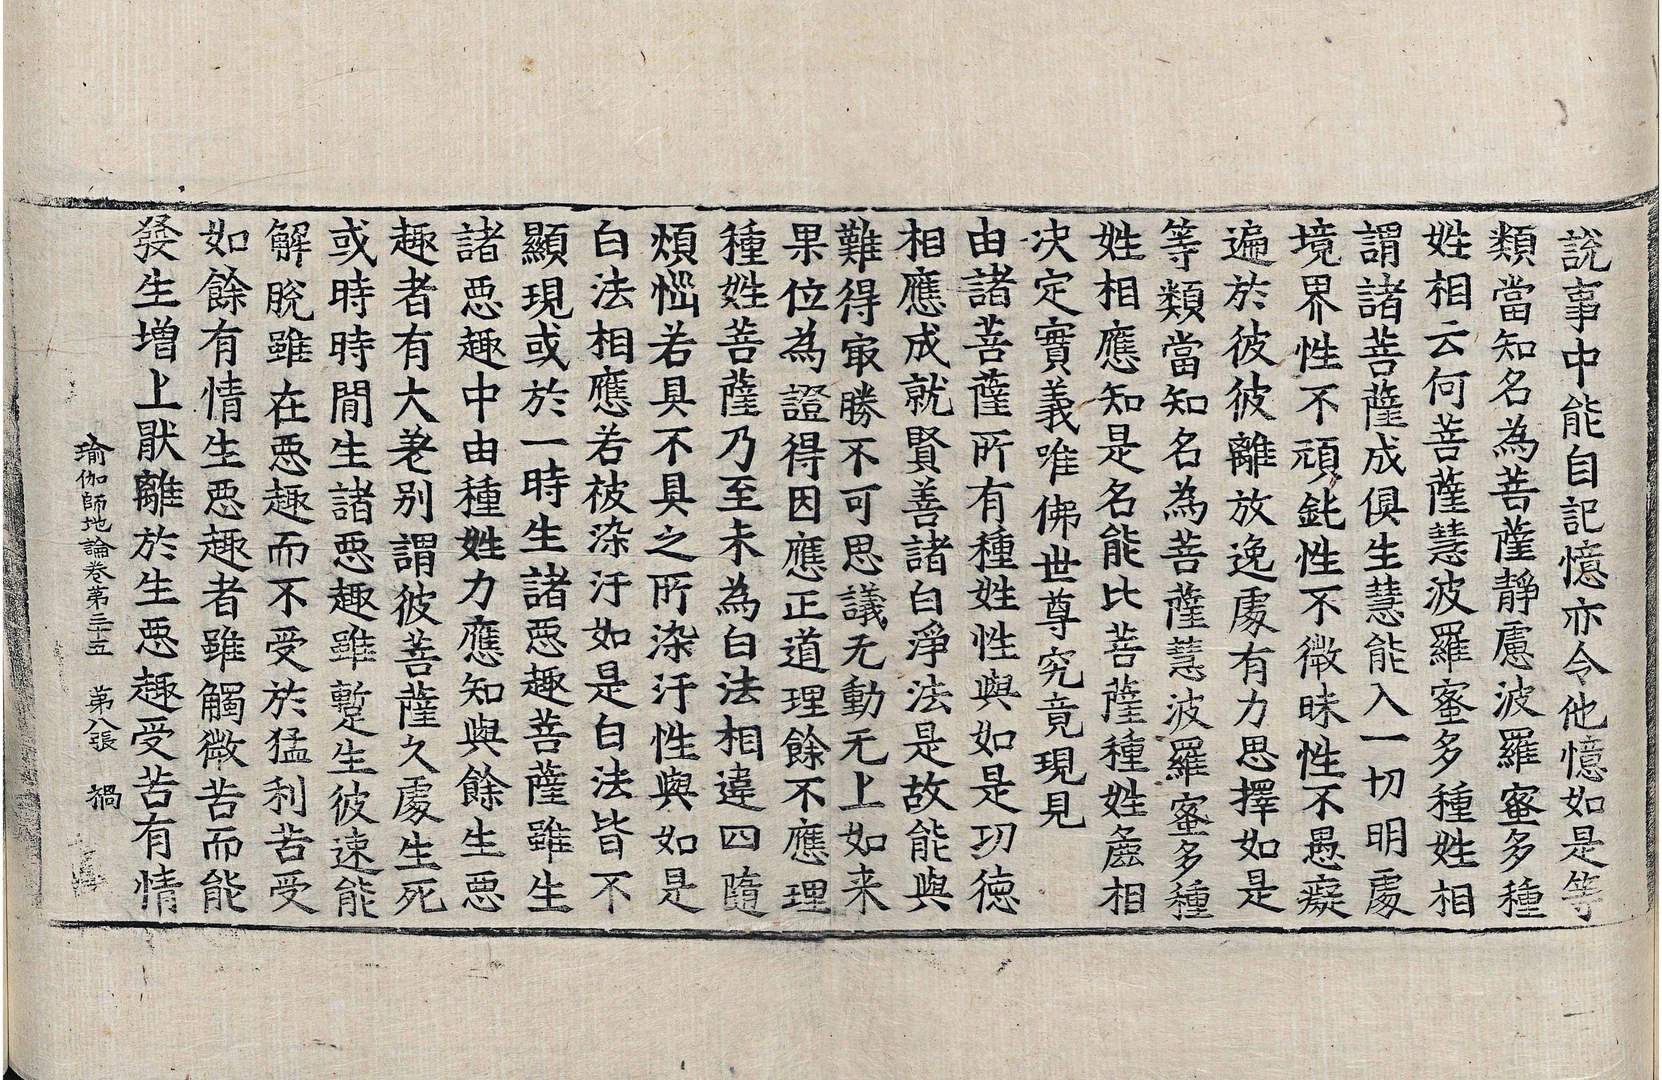 說事中能自記憶亦令他憶如是等
類當知名為菩薩靜慮波羅蜜多種
姓相云何菩薩慧波羅蜜多種姓相
謂諸菩薩成俱生慧能入一切明處
境界性不頑鈍性不微昧性不愚癡
遍於彼彼離放逸處有力思擇如是
等類當知名為菩薩慧波羅蜜多種
姓相應知是名能比菩薩種姓麁相
决定實義唯佛世尊究竟現見
由諸菩薩所有種姓性與如是功德
相應成就賢善諸白淨法是故能與
難得冣勝不可思議无動无上如来
果位為證得因應正道理餘不應理
種姓菩薩乃至未為白法相違四隨
煩惱若具不具之所染汙性與如是
白法相應若被染汙如是白法皆不
顯現或於一時生諸惡趣菩薩雖生
諸惡趣中由種姓力應知與餘生惡
趣者有大差別謂彼菩薩久處生死
或時時閒生諸惡趣雖蹔生彼速能
解脫雖在惡趣而不受於猛利苦受
如餘有情生惡趣者雖觸微苦而能
發生增上猒離於生惡趣受苦有情
瑜伽師地論卷第三十五 第八張 禍